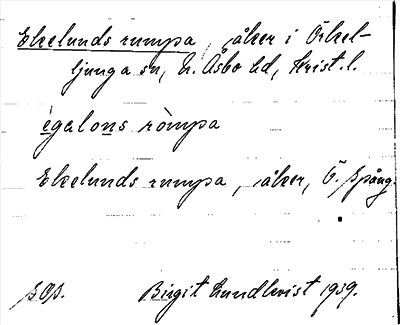 Ekelunds rumpa, åker i Örkel-
ljunga sn, N. Åsbo hd, Krist. l.
egalons ròmpa
Ekelunds rumpa, åker, Ö. Spång.
Birgit Lundkvist 1939.